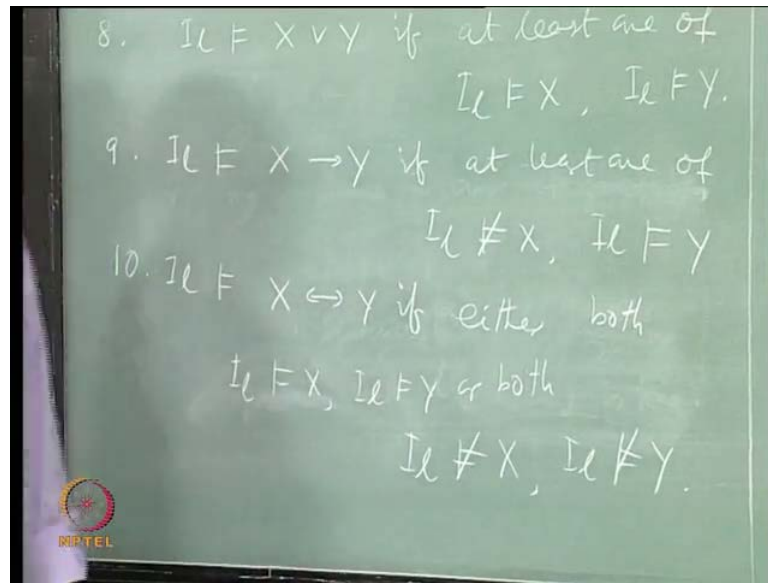 8. I_ℓ ⊨ X ∨ Y if at least one of
I_ℓ ⊨ X, I_ℓ ⊨ Y.
9. I_ℓ ⊨ X → Y if at least one of
I_ℓ ⊭ X, I_ℓ ⊨ Y
10. I_ℓ ⊨ X ↔ Y if either both
I_ℓ ⊨ X, I_ℓ ⊨ Y or both
I_ℓ ⊭ X, I_ℓ ⊭ Y.
NPTEL